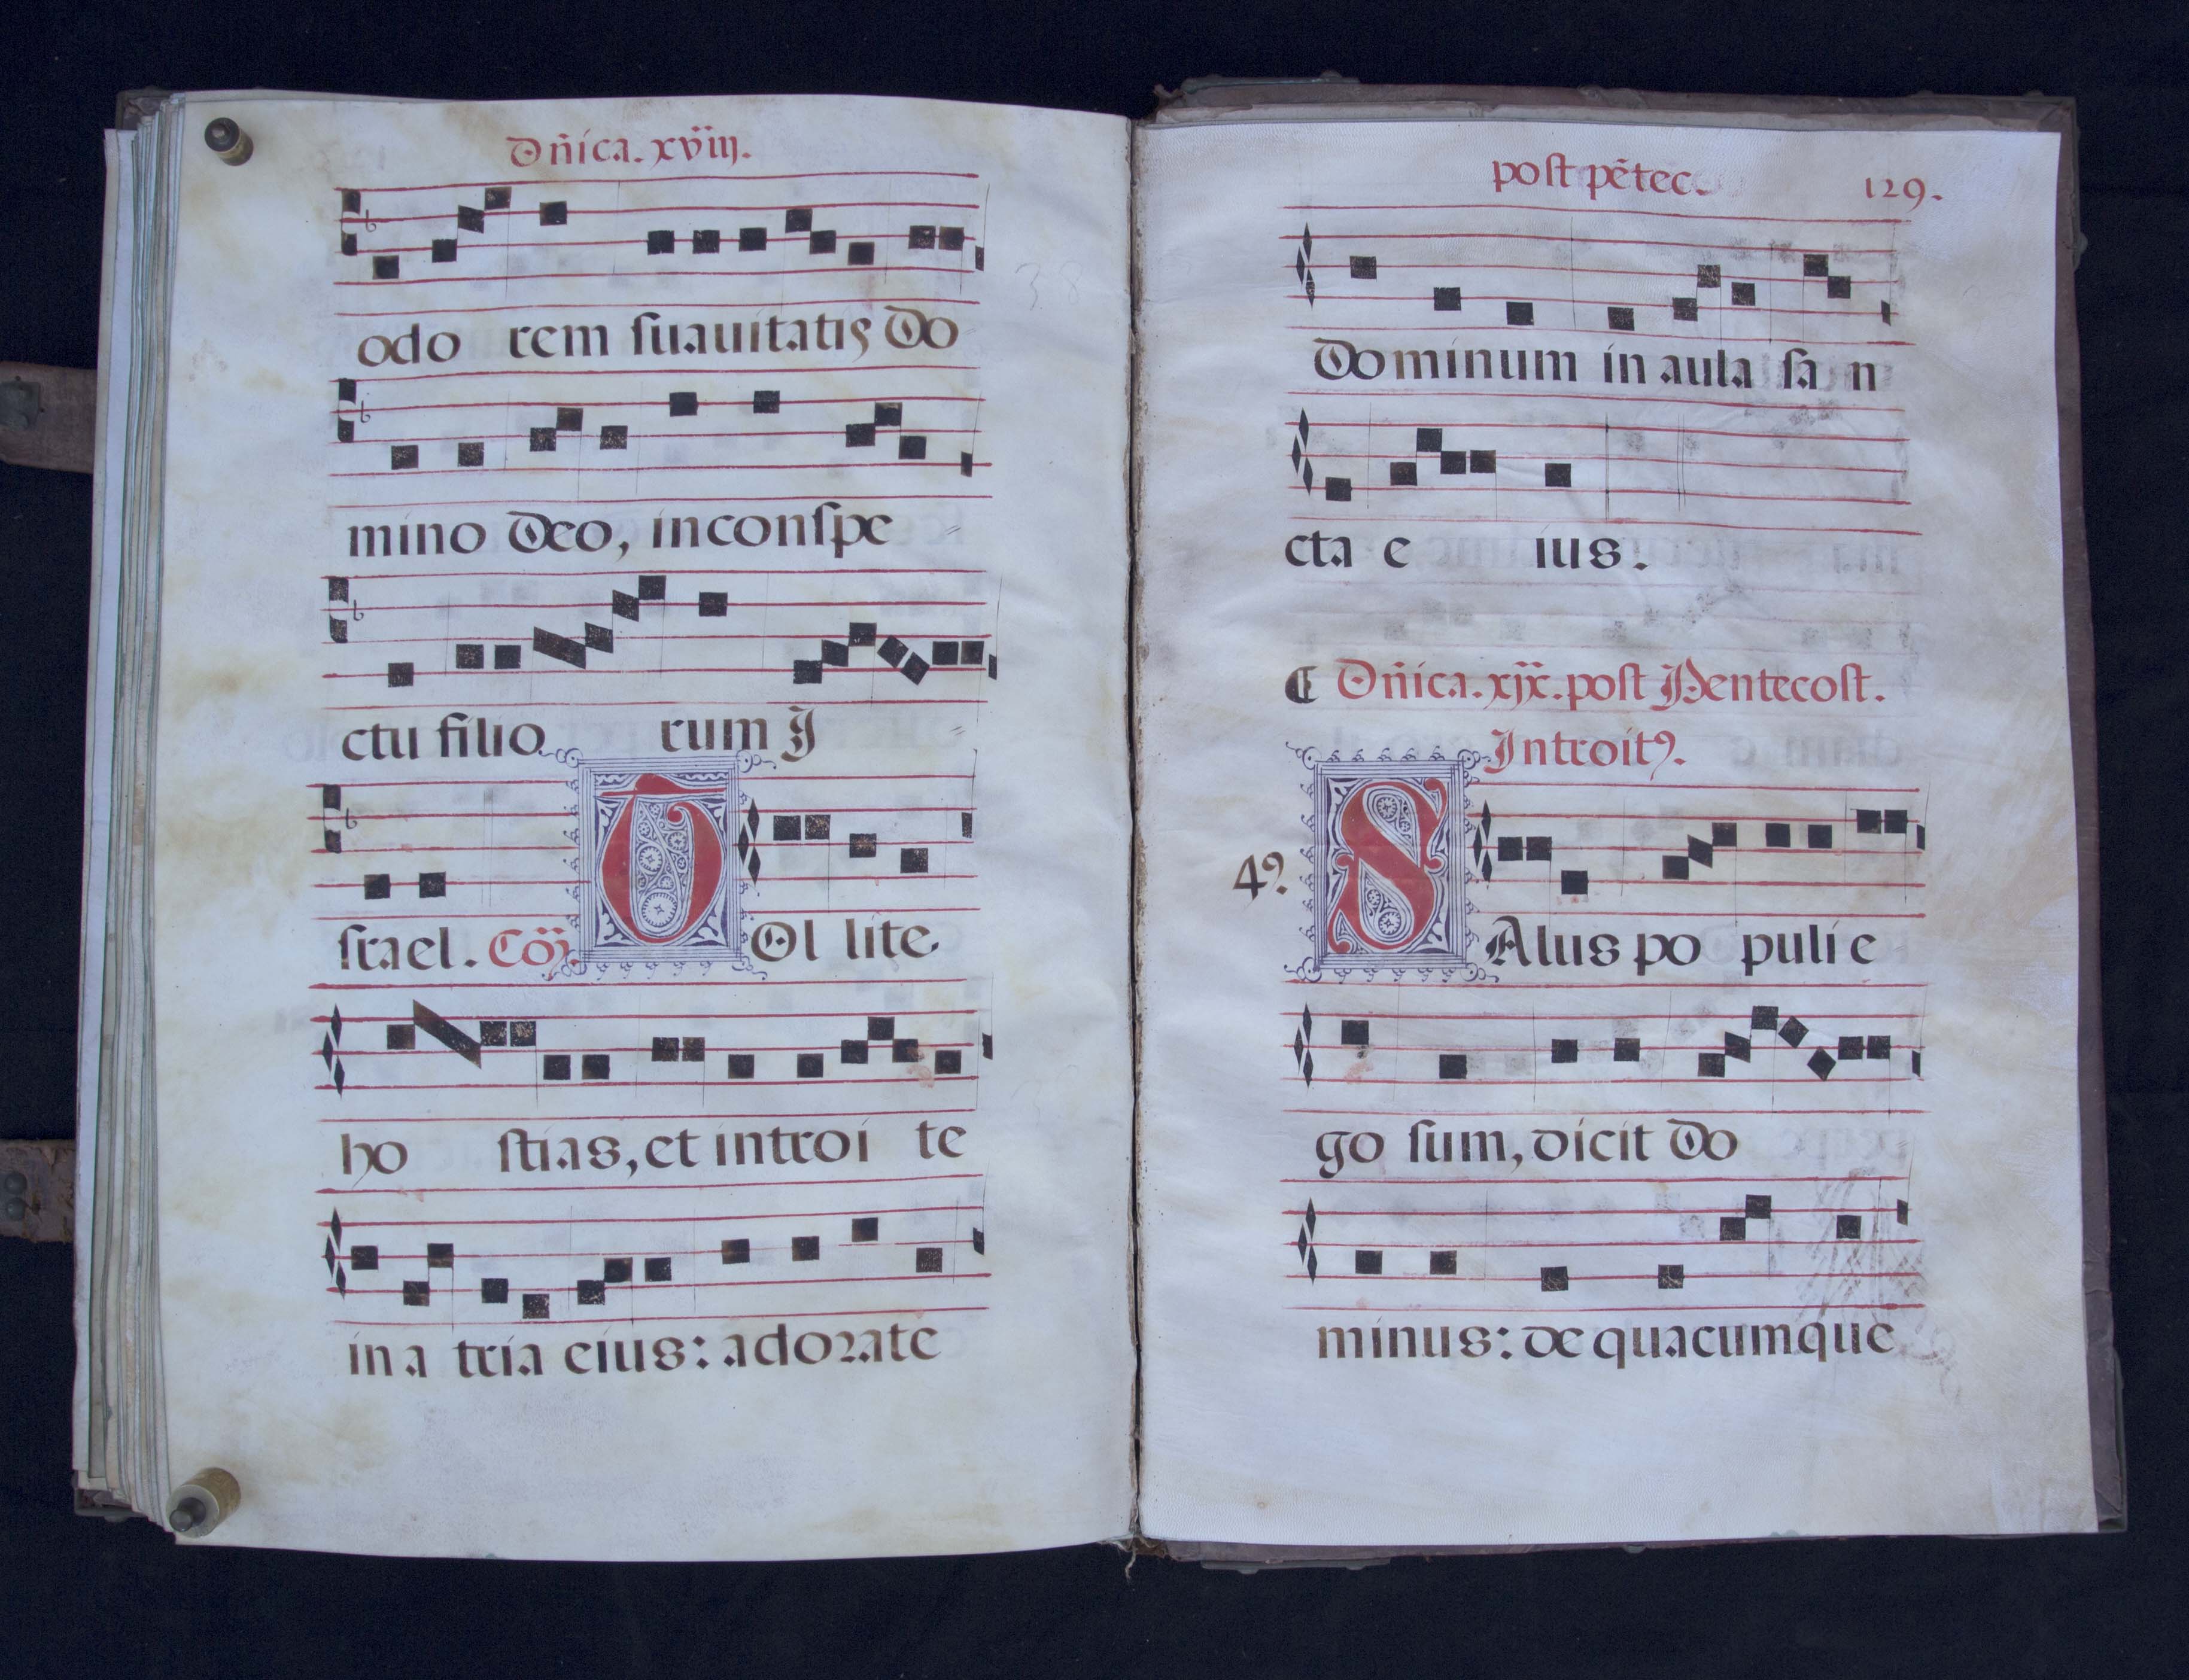 Dñica. xviij.
odo rem suauitatis Do
mino Deo, in conspe
ctu filio rum I
srael. Cõ. T Ol lite
ho stias, et introi te
in a tria eius: adorate
post pẽtec. 129.
Dominum in aula sa n
cta e ius.
Dñica. xjx. post Pentecost.
Introit9.
49 S Alus po puli e
go sum, dicit Do
minus: de quacumque